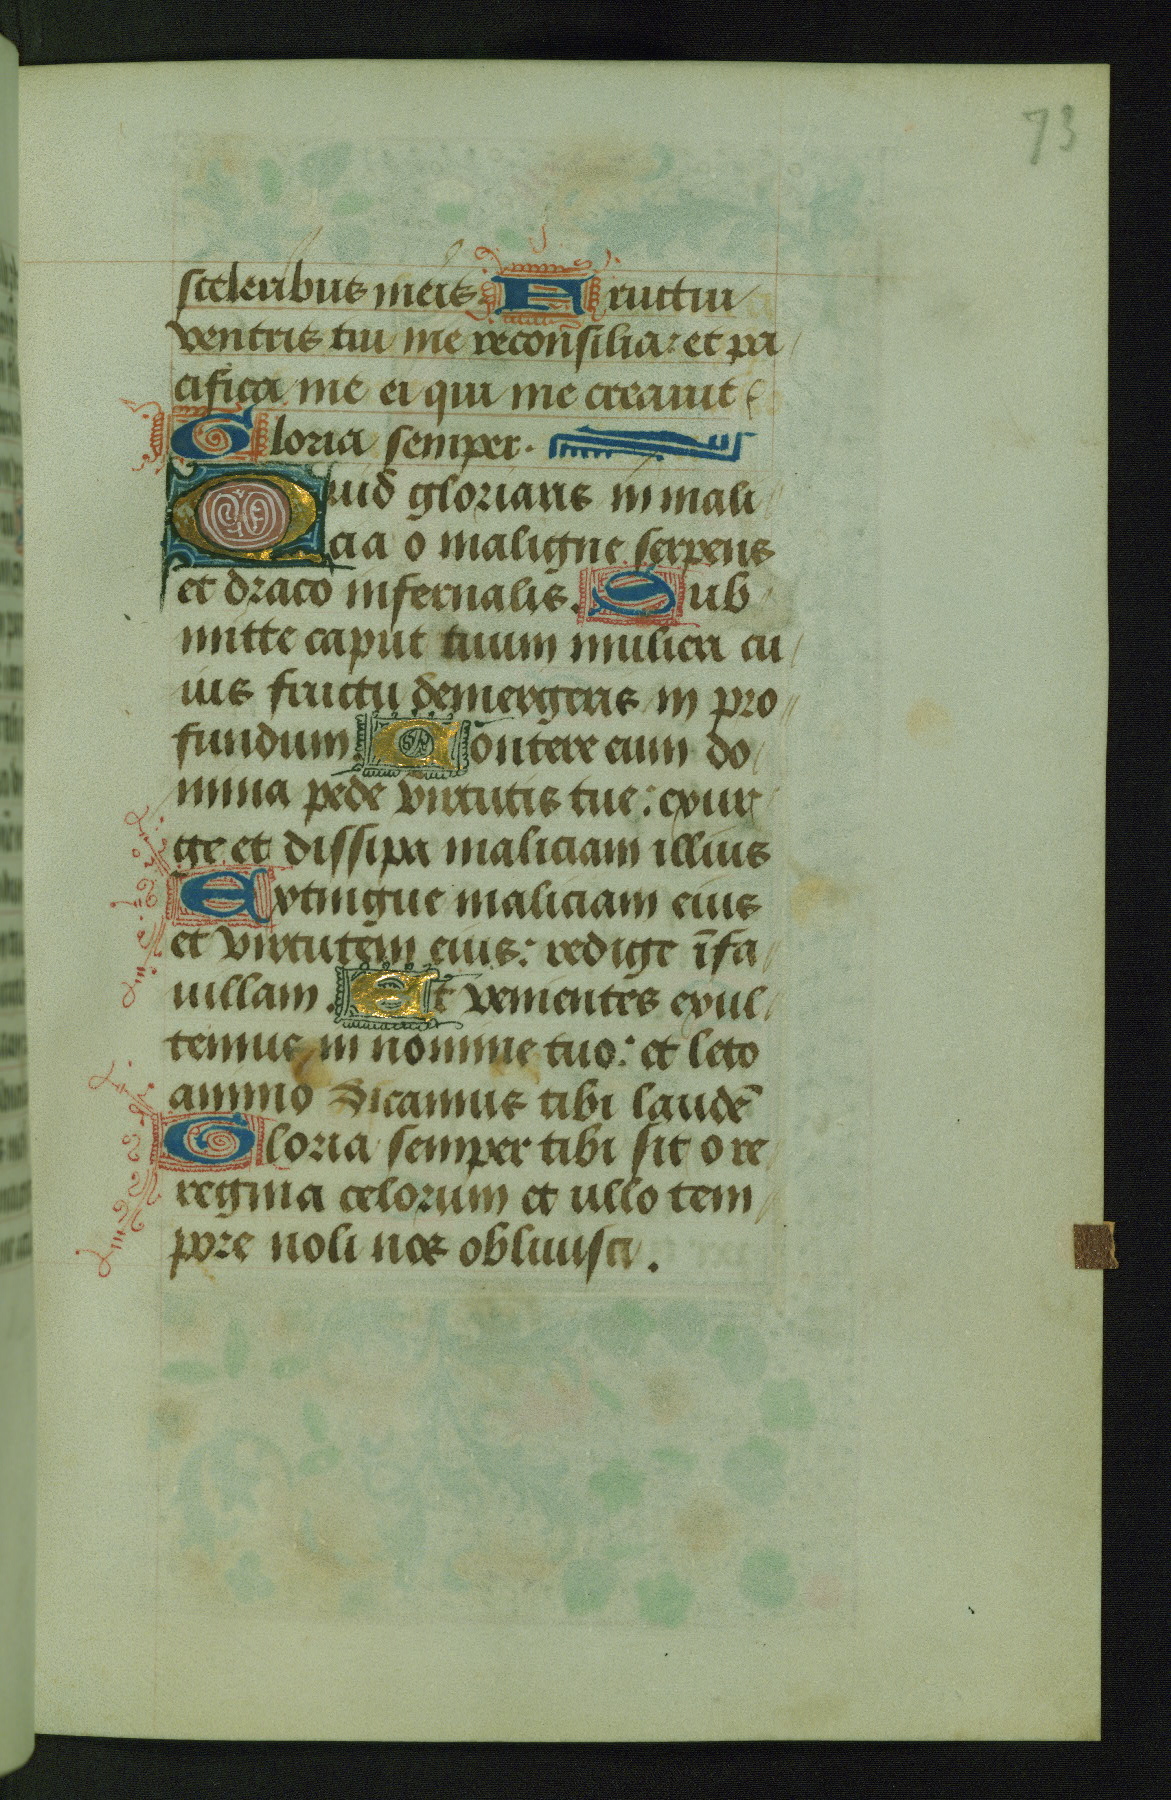 73
sceleribus meis Fructui
ventris tui me reconsilia: et pa
cifica me ei qui me creauit
Gloria semper.
Quid gloriaris in mali
cia o maligne serpens
et draco infernalis. Sub
mitte caput tuum mulieri cu
ius fructu demergeris in pro
fundum. Contere eum do
mina pede virtutis tue: exur
ge et dissipa maliciam illius
Extingue maliciam eius
et virtutem eius: redige īfa
uillam. Et venientes exul
temus in nomine tuo: et leto
animo dicamus tibi laudē
Gloria semper tibi sit o re
regina celorum et ullo tem
pore noli nos obliuisci.